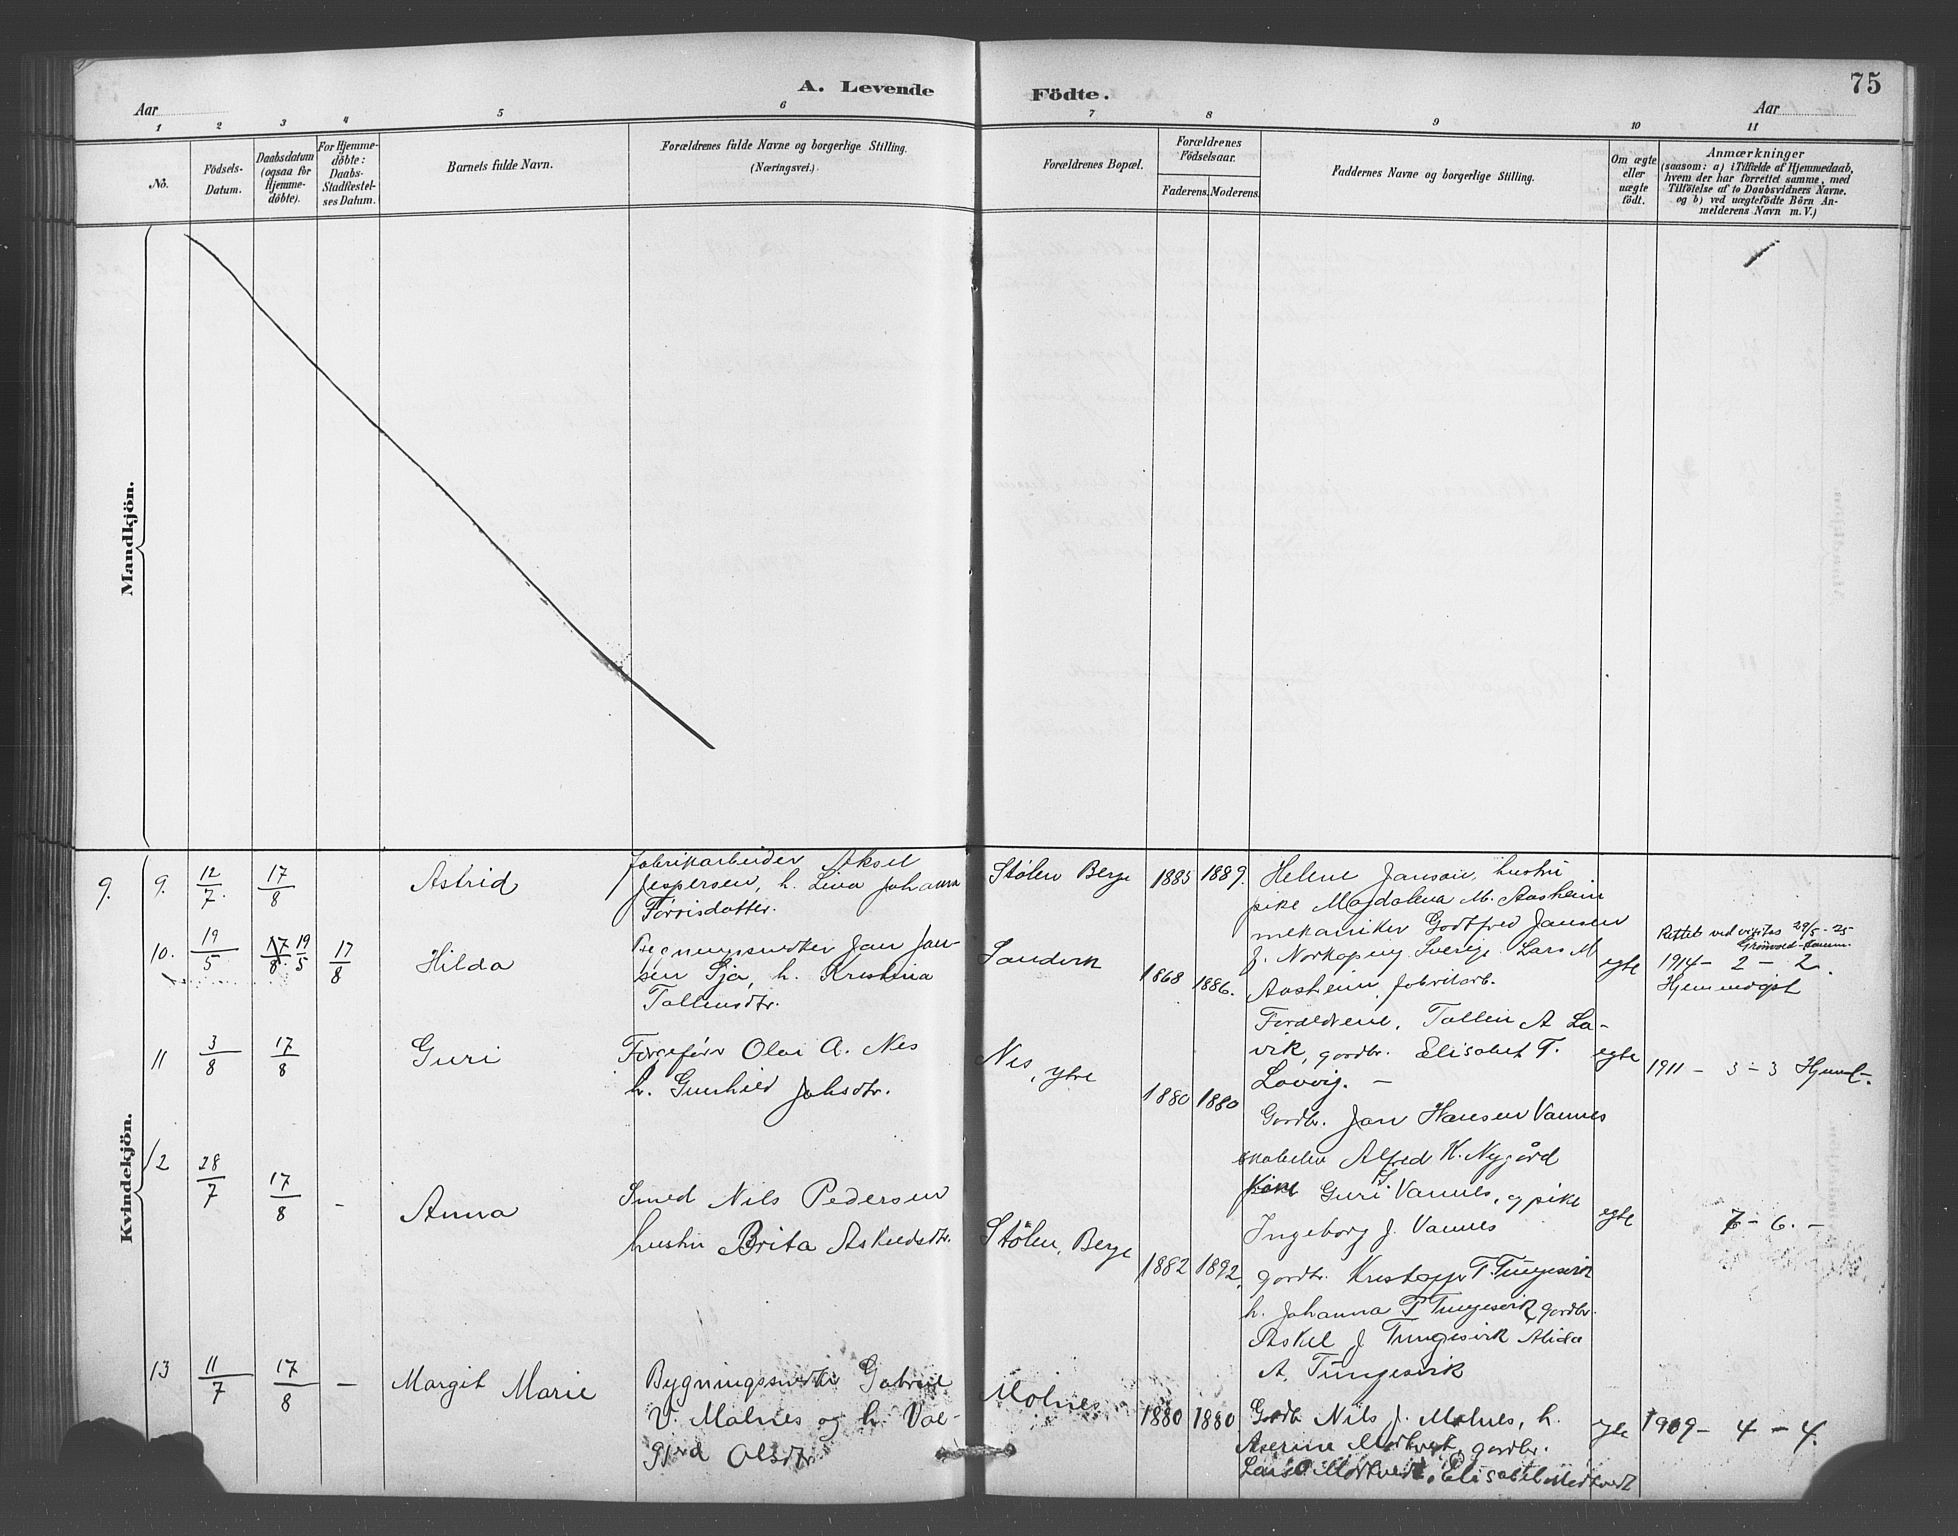 A. Levende Födte.
75
Aar
Aar
1 2 3 4 5 6 7 8 9 10 11
No.
Födsels-
Datum.
Daabsdatum
(ogsaa for
Hjemme-
döbte).
For Hjemme-
döbte:
Daabs-
Stadfæstel-
ses Datum.
Barnets fulde Navn.
Forældrenes fulde Navne og borgerlige Stilling.
(Næringsvei.)
Forældrenes Bopæl.
Forældrenes
Födselsaar.
Faderens. Moderens.
Faddernes Navne og borgerlige Stilling.
Om ægte
eller
uægte
födt.
Anmærkninger
(saasom: a) i Tilfælde af Hjemmedaab,
hvem der har forrettet samme, med
Tilföielse af to Daabsvidners Navne.
og b) ved uægtefödte Börn An-
melderens Navn m. V.)
Mandkjön.
Kvindekjön.
9. 9. 12/7. 17/8 Astrid
Fabrikarbeider Aksel
Jespersen, h. Lina Johanna
Tørrisdatter.
Stølen Berge 1885 1889.
Helene Jansen, hustru
pike Magdalena M. Aasheim
mekaniker Godtfred Jansen
f. Norkøping Sverig. Lars M
Aasheim, fabrikarb.
10. 19/5 17/8 19/5 17/8 Hilda
Bygningssnedker Jan Jan-
sen Sjø, h. Kristina
Tollinsdtr.
Sandvik 1868 1886.
Foreldrene, Tollin A La-
vik, gardbr. Elisabet T.
Lavvig. -
egte
Rettet ved visitas 29/5-25
1914 - 2 - 2.
Hjemmedøpt
11 3/8 17/8 Guri
Olai A. Nes
h. Gunhild Johsdtr.
Nes, ytre 1880 1880
Gardbr. Jan Hansen Vannes
Alfred K. Nygård
pike Guri J Vannes, og pike
Ingeborg J. Vannes
egte
1911 - 3 - 3 Hjemd.
12 28/7 17/8 - Anna
Smed Nils Pedersen
hustru Brita Askildsdtr.
Stølen, Berge 1882 1892,
gardbr. Kristoffer T. Tungesvik
h. Johanna T Tungesvik gardbr.
Askel J. Tungesvik Alida
A. Tungesvik
egte
6. -
13 11/7 17/8 - Margit Marie
Bygningssnedker Gabriel
V. Malnes og h. Val-
gjerd Olsdtr.
Molnes 1880 1880
Gardb. Nils J. Molnes, h.
Aserine Mørkvedt, gardbr.
Lars O Mørkvedt, Elisabet Mørkvedt
egte
1909 - 4 - 4.